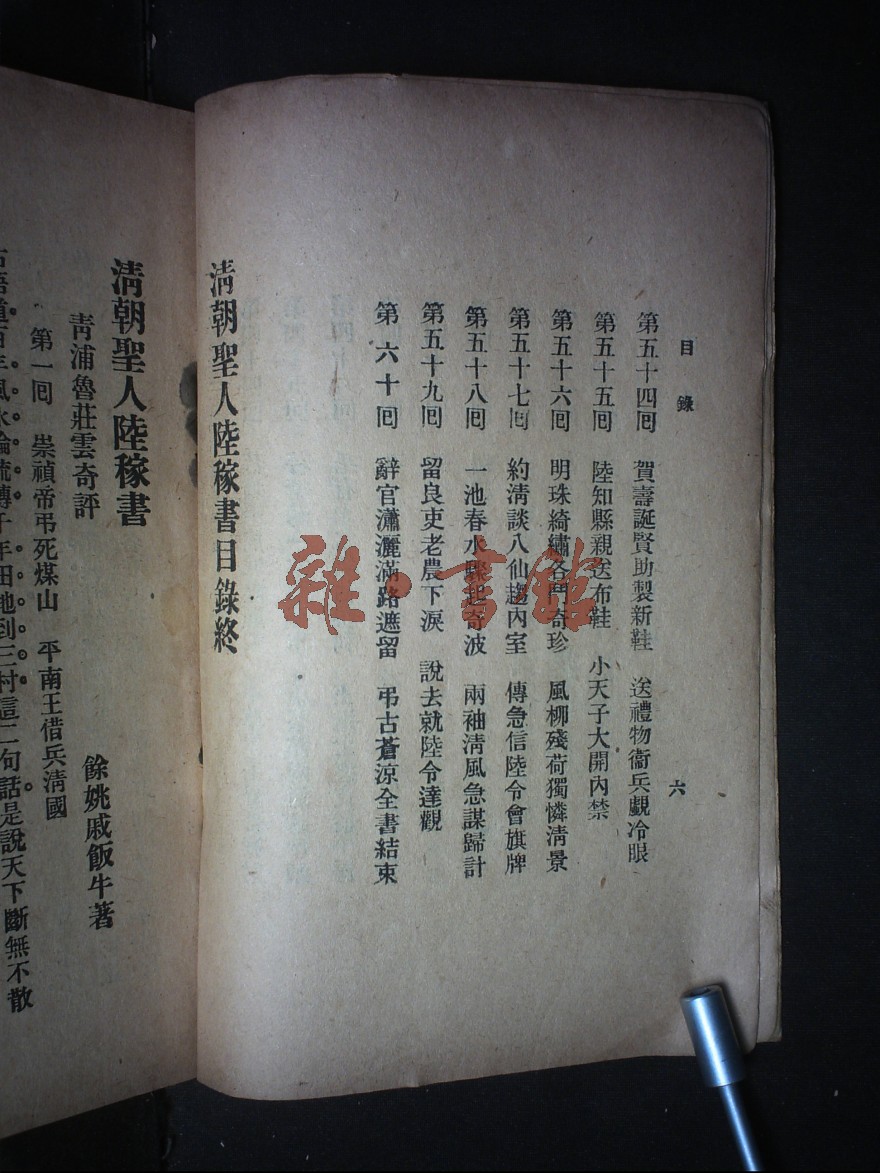 目錄
六
第五十四囘 賀壽誕賢助製新鞋 送禮物衞兵覷冷眼
第五十五囘 陸知縣親送布鞋 小天子大開內禁
第五十六囘 明珠綺繡各鬥奇珍 風柳殘荷獨憐淸景
第五十七囘 約淸談八仙趨內室 傳急信陸令會旗牌
第五十八囘 一池春水驟起奇波 兩袖淸風急謀歸計
第五十九囘 留良吏老農下淚 說去就陸令達觀
第六十囘 辭官瀟灑滿路遮留 弔古蒼涼全書結束
淸朝聖人陸稼書目錄終
雜·書館
淸朝聖人陸稼書
靑浦魯莊雲奇評
餘姚戚飯牛著
第一囘 崇禎帝弔死煤山 平南王借兵淸國
年風水輪流轉千年田地到三村這二句話是說天下斷無不散